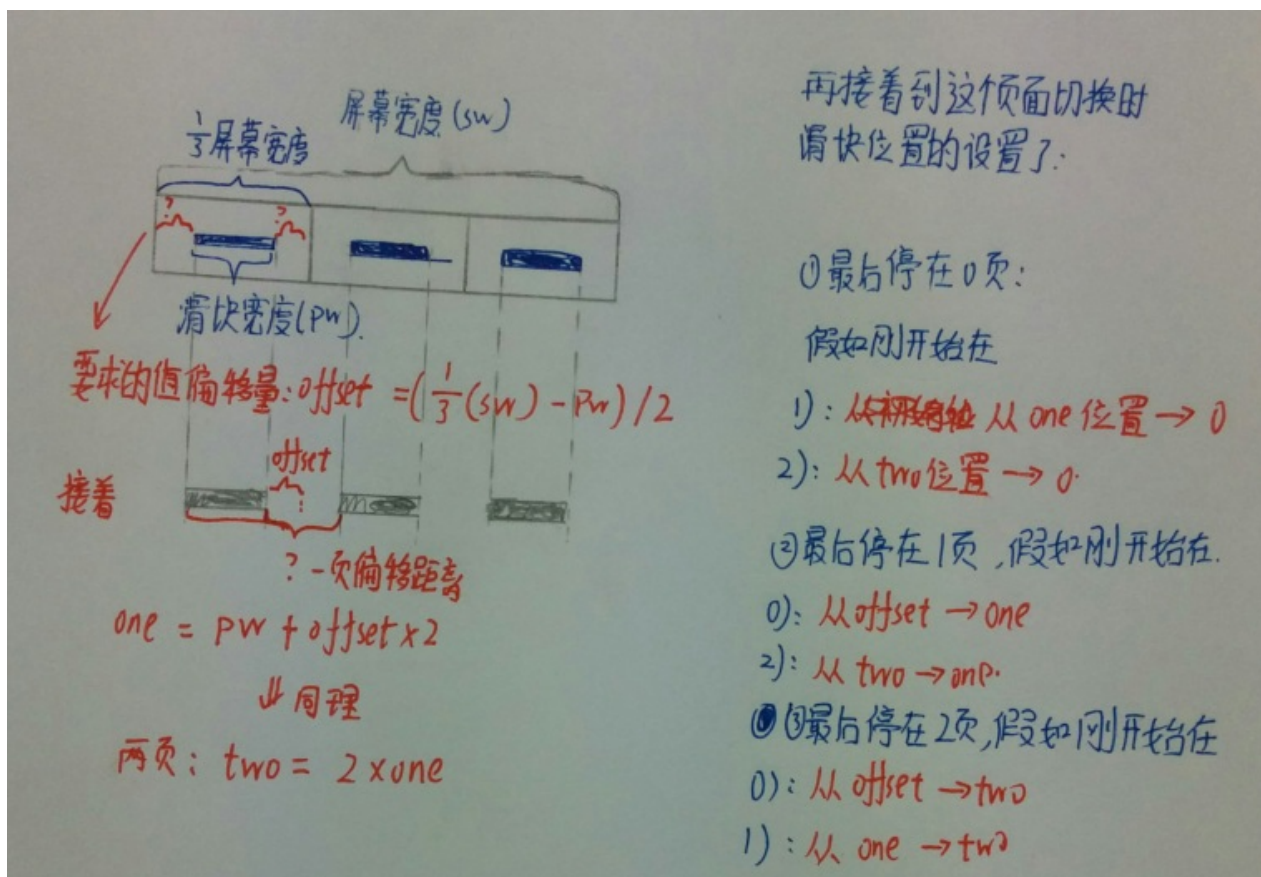 屏幕宽度(sw)
1/3屏幕宽度
? ?
滑块宽度(pw).
要求的值偏移量:offset =(1/3(sw)-Pw)/2
offset
接着
?一页偏移距离
one = pw + offset×2
⇓ 同理
两页: two = 2×one
再接着到这个页面切换时
滑块位置的设置了:
①最后停在0页:
假如刚开始在
1): 从one位置→0
2): 从two位置→0.
②最后停在1页,假如刚开始在.
0): 从offset→one
2): 从two→one.
③最后停在2页,假如刚开始在
0): 从offset→two
1): 从 one →two